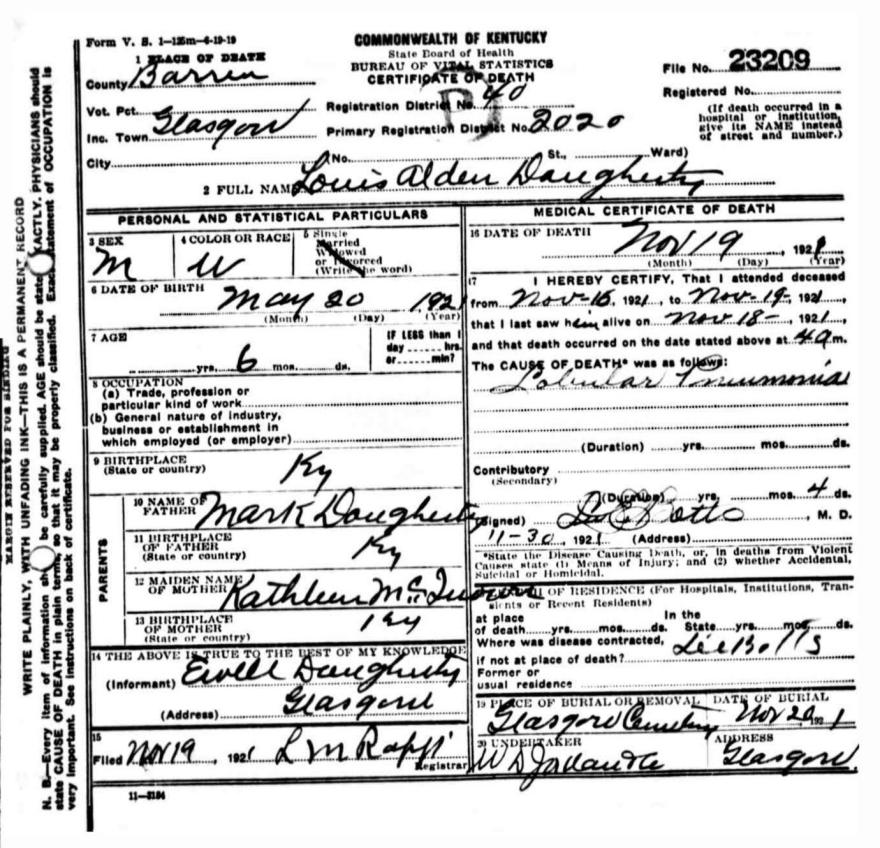 Form V. S. 1-125m-4-19-19
COMMONWEALTH OF KENTUCKY
State Board of Health
BUREAU OF VITAL STATISTICS
CERTIFICATE OF DEATH
File No. 23209
Registered No.
(If death occurred in a hospital or institution, give its NAME instead of street and number.)
1 PLACE OF DEATH
County Barren
Vot. Pct.
Inc. Town Glasgow
City
Registration District No. 40
Primary Registration District No. 2020
(No. St., Ward)
2 FULL NAME Louis Alden Daugherty
PERSONAL AND STATISTICAL PARTICULARS
3 SEX M
4 COLOR OR RACE W
5 Single
Married
Widowed
or Divorced
(Write the word)
6 DATE OF BIRTH May 20 1921
(Month) (Day) (Year)
7 AGE
yrs. 6 mos. ds.
IF LESS than 1
day hrs.
or min?
8 OCCUPATION
(a) Trade, profession or
particular kind of work
(b) General nature of industry,
business or establishment in
which employed (or employer)
9 BIRTHPLACE
(State or country) Ky
PARENTS
10 NAME OF
FATHER Mark Daugherty
11 BIRTHPLACE
OF FATHER
(State or country) Ky
12 MAIDEN NAME
OF MOTHER Kathleen
13 BIRTHPLACE
OF MOTHER
(State or country) Ky
14 THE ABOVE IS TRUE TO THE BEST OF MY KNOWLEDGE
(Informant) Ewell Daugherty
(Address) Glasgow
15
Filed Nov 19, 1921 L M
Registrar
11-3184
MEDICAL CERTIFICATE OF DEATH
16 DATE OF DEATH Nov 19, 1921
(Month) (Day) (Year)
17 I HEREBY CERTIFY, That I attended deceased
from Nov-16, 1921, to Nov-19-, 1921,
that I last saw him alive on Nov 18-, 1921,
and that death occurred on the date stated above at 4 a m.
The CAUSE OF DEATH* was as follows:
Lobular Pneumonia
(Duration) yrs. mos. ds.
Contributory
(Secondary)
(Duration) yrs. mos. 4 ds.
(Signed) M. D.
11-30, 1921 (Address)
*State the Disease Causing Death, or, in deaths from Violent
Causes state (1) Means of Injury; and (2) whether Accidental,
Suicidal or Homicidal.
OF RESIDENCE (For Hospitals, Institutions, Tran-
sients or Recent Residents)
at place In the
of death yrs. mos. ds. State yrs. mos. ds.
Where was disease contracted,
if not at place of death?
Former or
usual residence
19 PLACE OF BURIAL OR REMOVAL DATE OF BURIAL
Glasgow Cemetery Nov 20 1921
20 UNDERTAKER ADDRESS
W D Glasgow
MARGIN RESERVED FOR BINDING
WRITE PLAINLY, WITH UNFADING INK—THIS IS A PERMANENT RECORD
N. B.—Every item of information should be carefully supplied. AGE should be stated EXACTLY. PHYSICIANS should
state CAUSE OF DEATH in plain terms, so that it may be properly classified. Exact statement of OCCUPATION is
very important. See instructions on back of certificate.